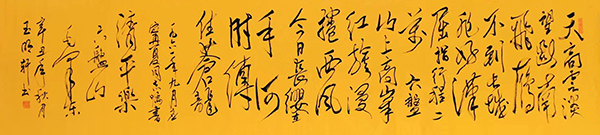 天高云淡
望断南
飞雁
不到长城
非好汉
屈指行程二
万 六盘
山上高峰
红旗漫
捲西风
今日长缨
在手何
时缚
住苍龙
一九六一年九月应
宁夏同志嘱书
清平乐
六盘山
毛泽东
辛丑年秋月